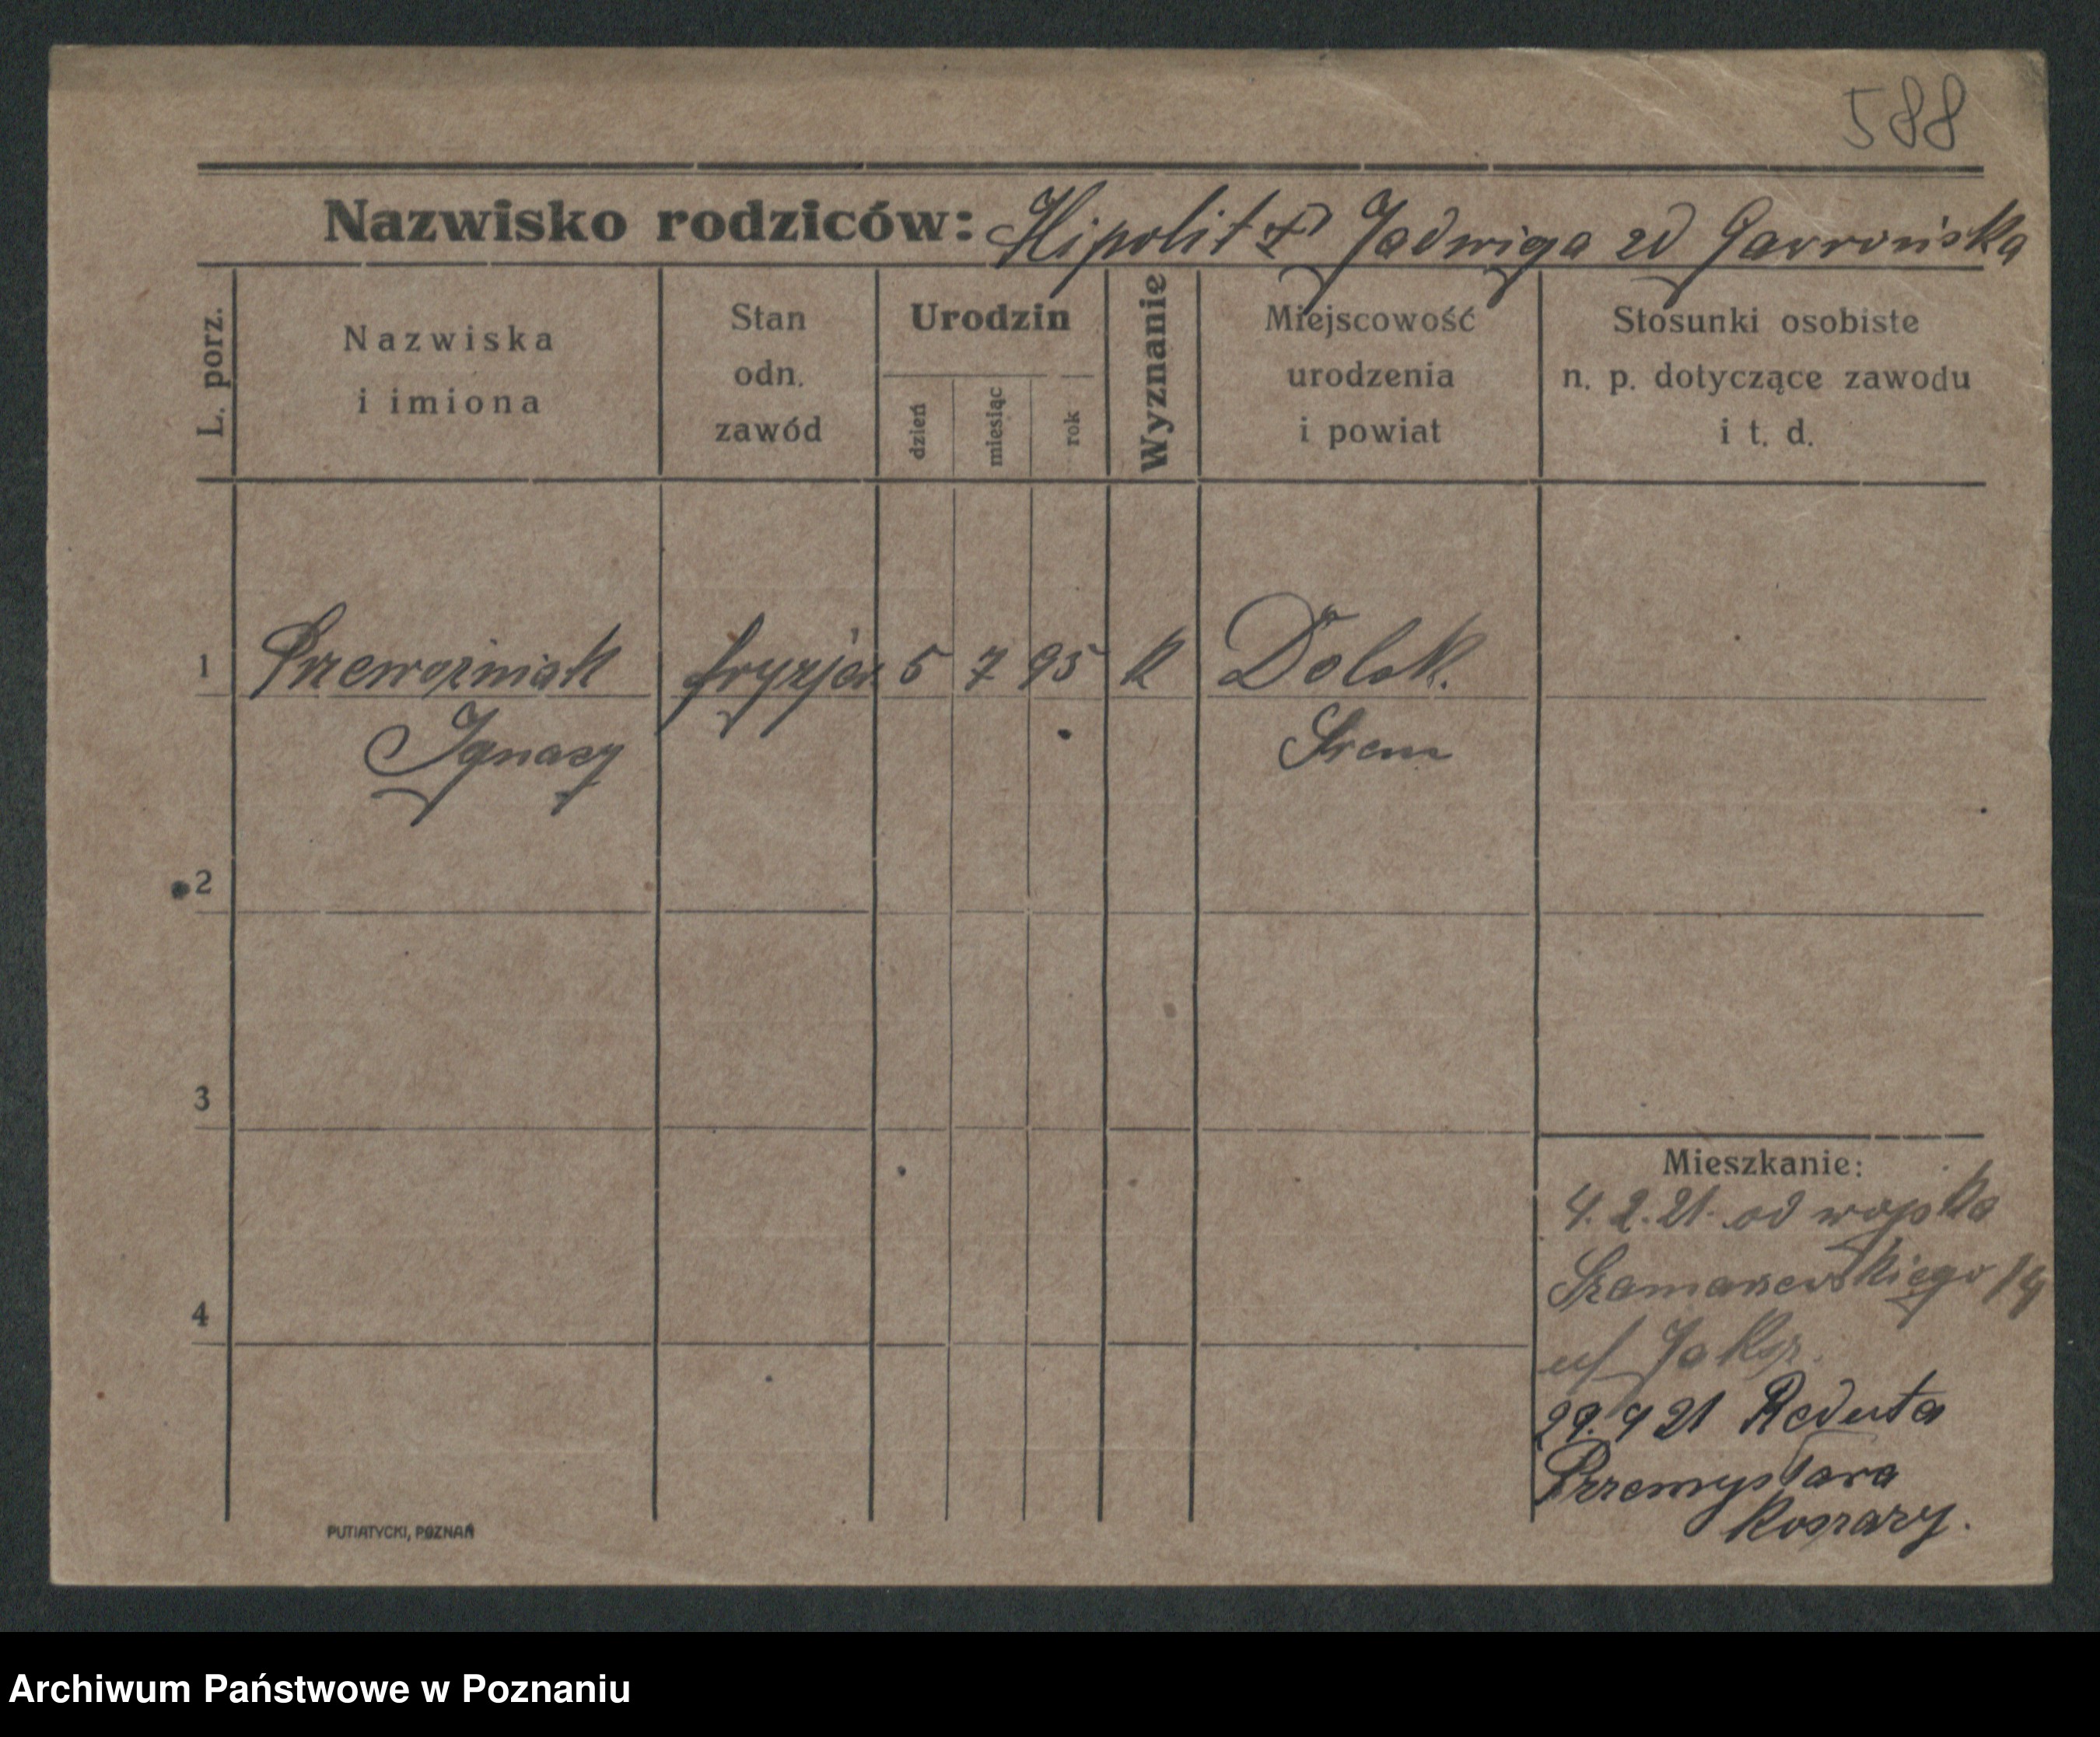 588
Nazwisko rodziców: Hipolit i Jadwiga zd Gawrońska
L. porz.
Nazwiska
i imiona
Stan
odn.
zawód
Urodzin
dzień
miesiąc
rok
Wyznanie
Miejscowość
urodzenia
i powiat
Stosunki osobiste
n. p. dotyczące zawodu
i t. d.
1 Przewoźniak fryzjer 5 7 95 k Dolsk.
Ignacy Śrem
2
3
4
Mieszkanie:
4.2.21. od wojska
Szamarzewskiego 14
29.9 21 Reduta
Przemysława
Koszary.
PUTIATYCKI, POZNAŃ
Archiwum Państwowe w Poznaniu